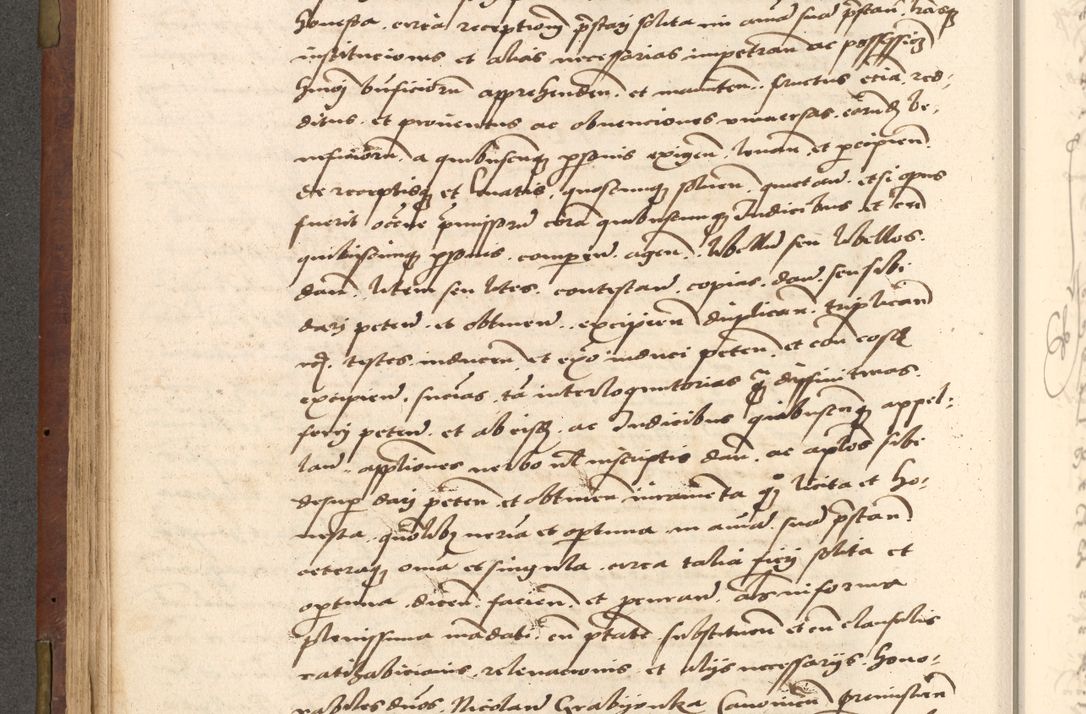 honesta, circa receptionem prestari solita in animam suam prestan. literasque
instituciones et alias necessarias impetran. ac possessionem
huiusmodi beneficiorum apprehenden. et manuten. fructus etiam red-
ditus et proventus ac obvenciones universas eorundem be-
neficiorum a quibuscunque personis exigen. levan. et percipien.
de receptisque et levatis, quoscunque solven. quietan. et si opus
fuerit, occasione premissorum coram quibuscunque Iudicibus et cum
quibuscunque personis comparen. agen. libellum seu libellos
dan. litem seu lites contestan. copias dan. seu sibi
dari peten. et obtinen. excipien. duplican. triplican.
testes inducen. et ex adverso induci peten. et contra eosdem
excipien. sententias, tam interlocutorias quam diffinitivas
ferri peten. et ab eisdem ac Iudicibus quibuscunque appel-
lan. appellationes verbo vel in scriptis dan. ac apostolos sibi
desuper dari peten. et obtinen. iuramenta quoque licita et ho-
nesta, quomodolibet necessaria et optima in animam suam prestan.
ceteraque omnia et singula, circa talia fieri solita et
optima dicen. facien. et procuran. alias in forma
plenissima mandati cum potestate substituen. et cum clausulis
ratihabicionis, relevacionis et aliis necessariis. Hono-
rabiles dominos Nicolaum Grabyonka Canonicum premislien.